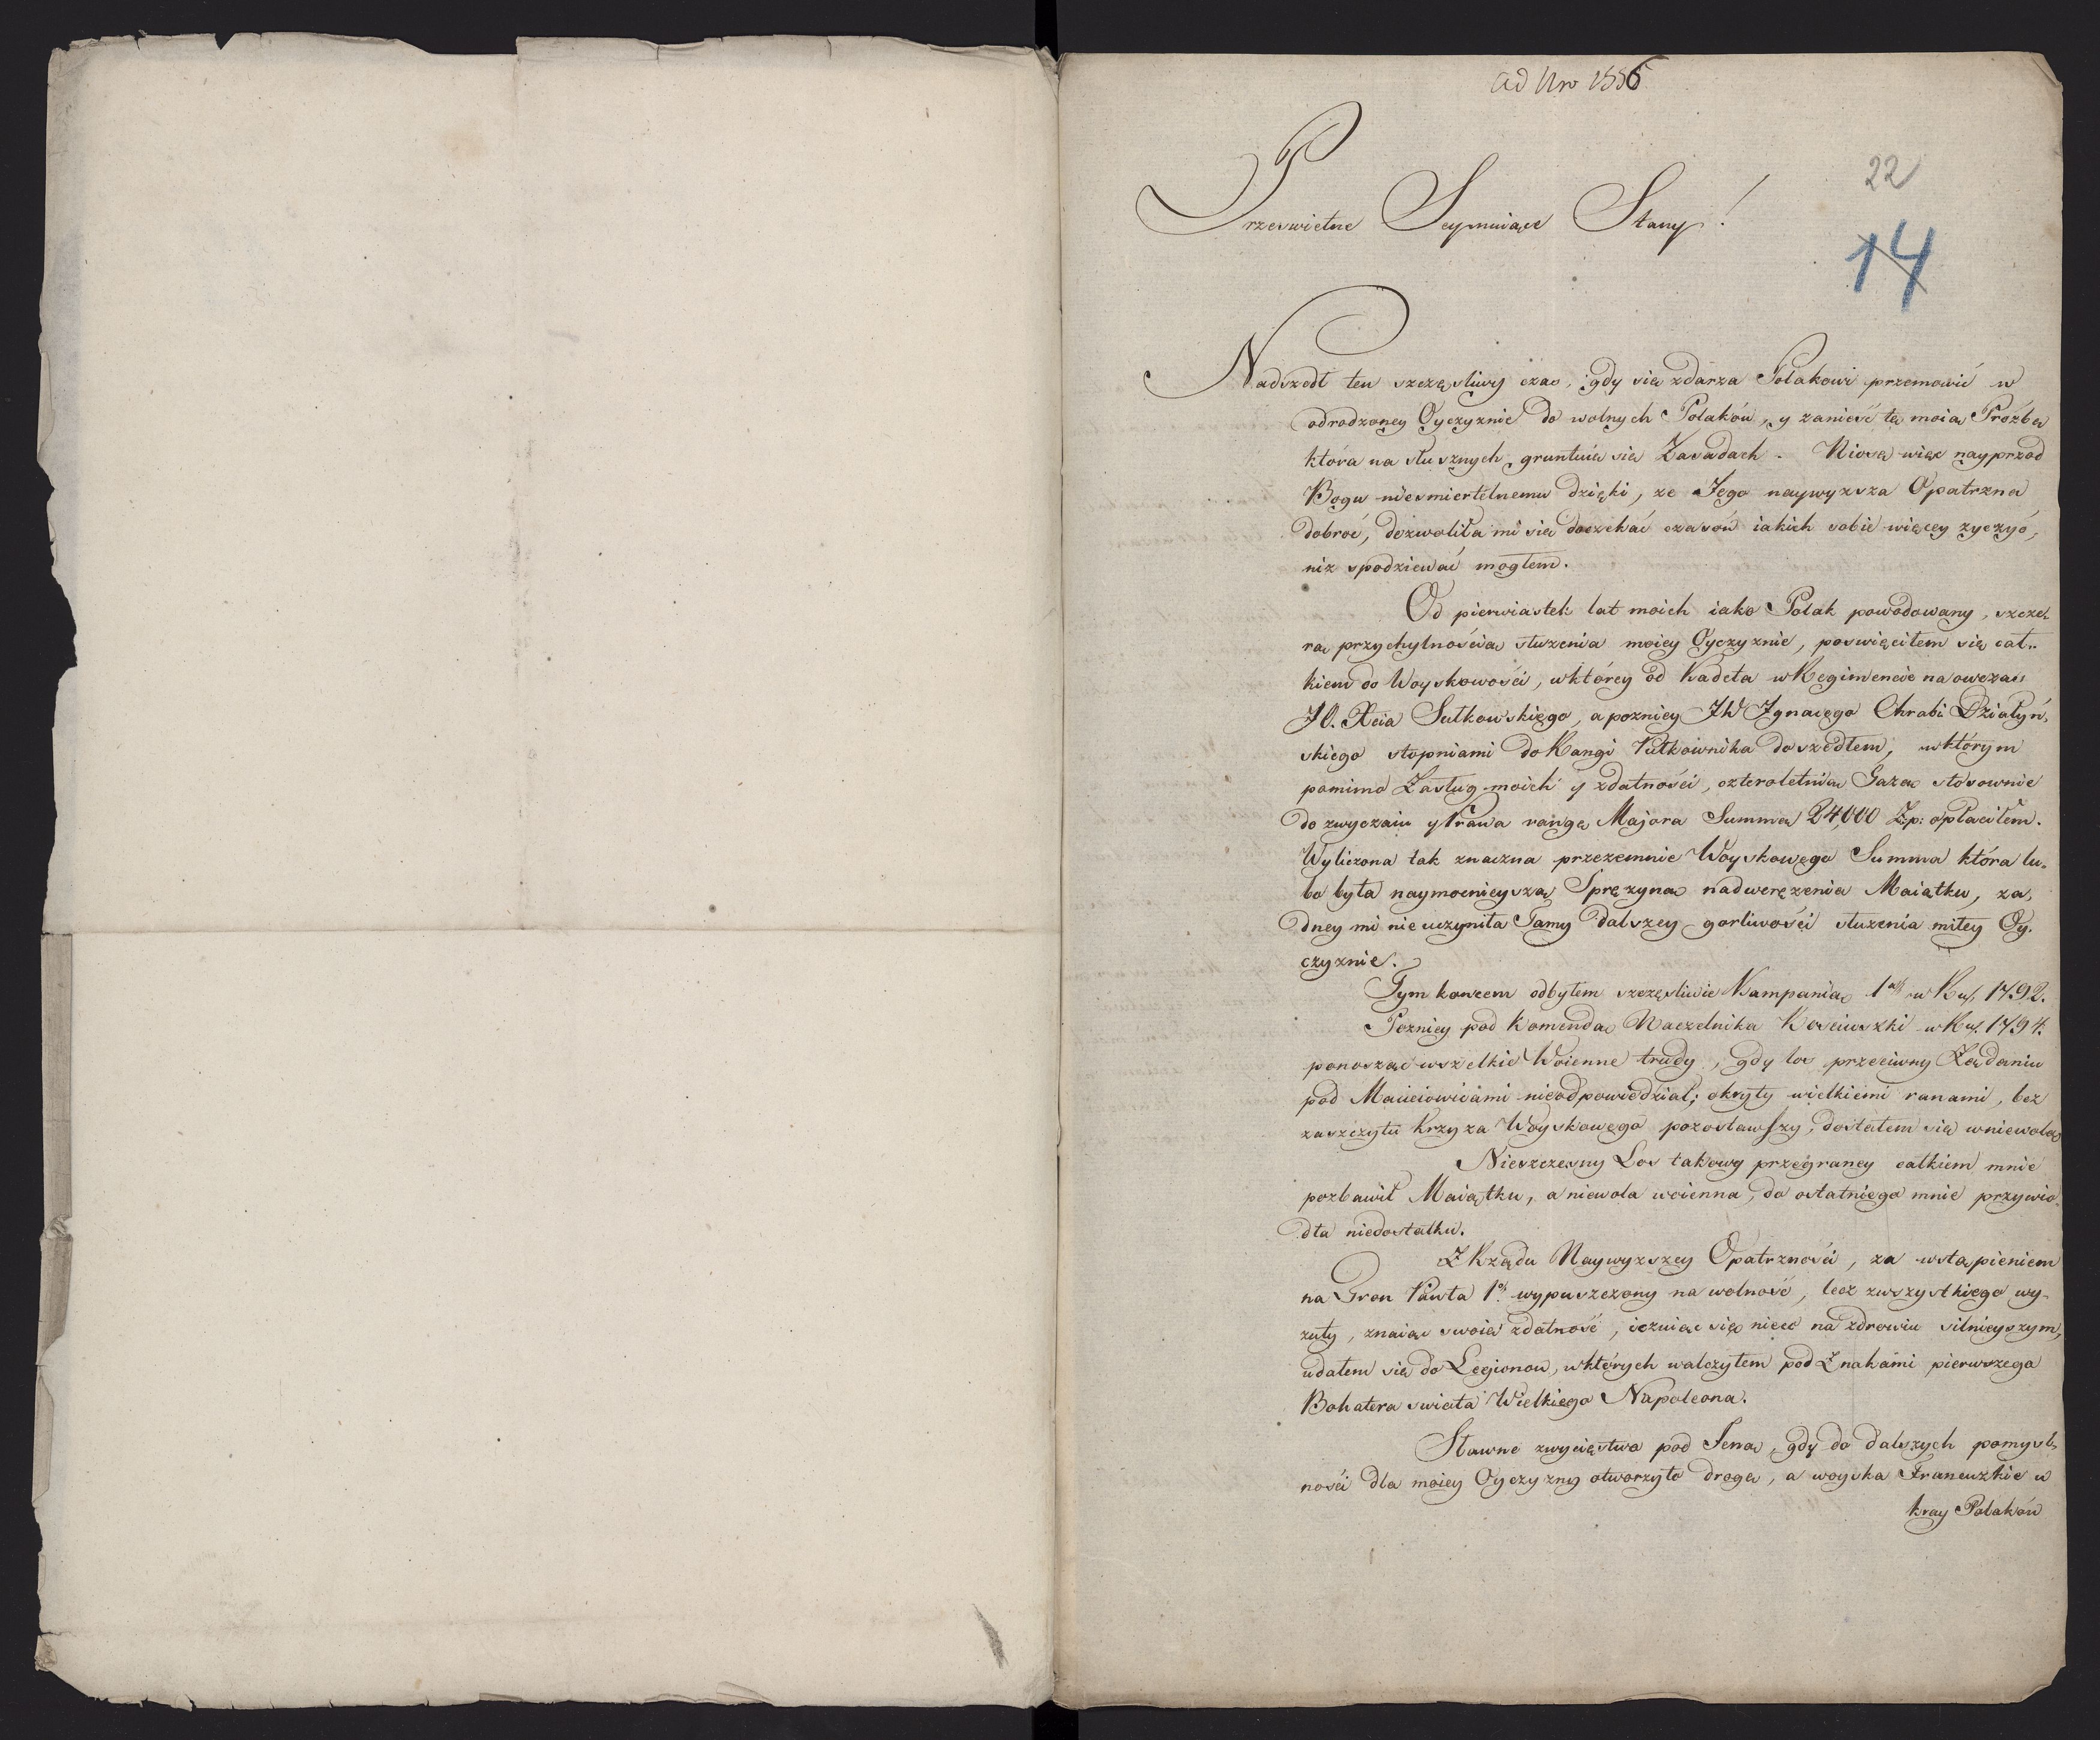 ad Nro 1556
22
14
Przeswietne Seymuiące Stany!
Nadszedł ten szczęsliwy czas, gdy się zdarza Polakowi przemowić w
odrodzoney Oyczyznie do wolnych Polaków, y zanieść tę moią Prożbę
która na słusznych gruntuie się Zasadach. Niosę więc nayprzod
Bogu niesmiertelnemu dzięki, ze Jego naywyzsza Opatrzna
dobroć, dozwoliła mi się doczekać czasów iakich sobie więcey zyczyć,
niz spodziewać mogłem.
Od pierwiastek lat moich iako Polak powodowany, szcze-
rą przychylnością służenia moiey Oyczyznie, poswięciłem się cał-
kiem do Woyskowości, w którey od Kadeta w Regimencie naowczas
JO. Xcia Sułkowskiego, a pozniey JW Jgnacego Chrabi Działyń-
skiego stopniami do Rangi Pułkownika doszedłem, w którym
pomimo Zasług moich y zdatności, czteroletnią Gazą stosownie
do zwyczaiu y Prawa rangę Majora Summą 24,000 Zp: opłaciłem.
Wyliczona tak znaczna przezemnie Woyskowego Summa która lu-
bo była naymocnieyszą Sprężyną nadweręzenia Maiątku, za-
dney mi nie uczyniła Tamy dalszey gorliwości służenia miłey Oy-
czyznie.
Tym koncem odbyłem szczęsliwie Kampanią 1ą w Ru. 1792.
Pozniey pod Komendą Naczelnika Kosciuszki w Ru. 1794.
ponosząc wszelkie Woienne trudy, gdy los przeciwny Ządaniu
pod Macieiowicami nieodpowiedział; okryty wielkiemi ranami, bez
zaszczytu Krzyza Woyskowego pozostawszy, dostałem się w niewolą
Nieszczesny Los takowy przegraney całkiem mnie
pozbawił Maiątku, a niewola woienna, do ostatniego mnie przywio-
dła niedostatku.
Z Rządu Naywyzszey Opatrzności, za wstąpieniem
na Tron Pawła 1o wypuszczony na wolność, lecz z wszystkiego wy-
zuty, znaiąc swoię zdatność, i czuiąc się nieco na zdrowiu silnieyszym,
udałem się do Legionow, w których walczyłem pod Znakami pierwszego
Bohatera swiata Wielkiego Napoleona.
Sławne zwycięstwo pod Jeną, gdy do dalszych pomysl-
ności dla moiey Oyczyzny otworzyło drogę, a woyska Francuzkie w
kray Polaków